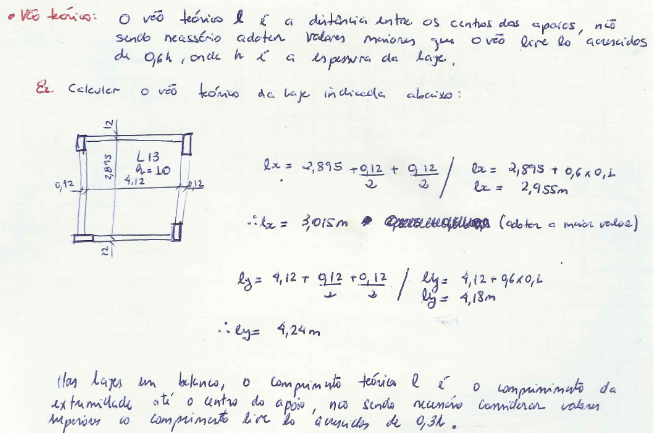 • Vão teórico: O vão teórico l é a distância entre os centros dos apoios, não
sendo necessário adotar valores maiores que o vão livre lo acrescidos
de 0,6h, onde h é a espessura da laje.
Ex. Calcular o vão teórico da laje indicada abaixo:
12
2,895
L13
h=10
4,12
0,12
0,12
12
lx = 2,895 + 0,12/2 + 0,12/2 / lx = 2,895 + 0,6 x 0,1
lx = 2,955m
∴ lx = 3,015m (adotar o maior valor)
ly = 4,12 + 0,12/2 + 0,12/2 / ly = 4,12 + 0,6 x 0,1
ly = 4,18m
∴ ly = 4,24m
Nas lajes em balanço, o comprimento teórico l é o comprimento da
extremidade até o centro do apoio, não sendo necessário considerar valores
superiores ao comprimento livre lo acrescidos de 0,3h.